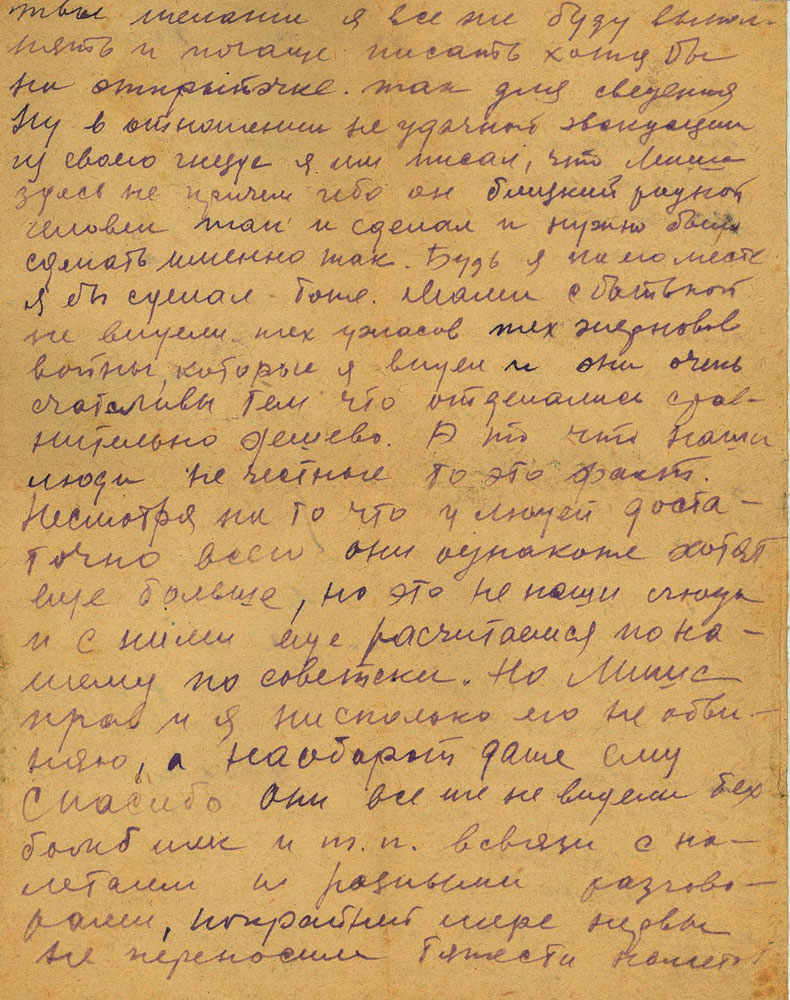 твои желания я все же буду выпол-
нять и почаще писать хотя бы
на открыточке. так для сведения
Ну в отношении не удачной эвакуации
из своего я им писал, что Миша
здесь не причем ибо он близкий родной
человек так и сделал и нужно было
сделать именно так. Будь я на его месте
я бы сделал тоже. Мама с батькой
не видели тех ужасов тех жерновов
войны, которые я видел и они очень
счастливы тем что отделались срав-
нительно дешево. А то что наши
люди не честные то это факт.
Несмотря на то что у людей доста-
точно всего они однакоже хотят
еще больше, но это не наши люди
и с ними еще расчитаемся по на-
шему по советски. Но Миша
прав и я нисколько его не обви-
няю, а наоборот даже ему
Спасибо они все же не видели тех
бомбежек и т.п. всвязи с на-
летами и разными разгово-
рами, покрайней мере нервы
не переносили тяжести